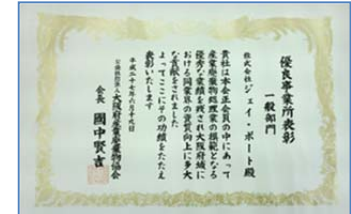 優良事業所表彰
一般部門
株式会社ジェイ・ポート殿
貴社は本会正会員の中にあって
産業廃棄物処理業の模範となる
優秀な業績を残され大阪府域に
おける同業界の資質向上に多大
な貢献をされました
よってここにその功績をたたえ
表彰いたします
平成二十七年六月十九日
大阪府産業廃棄物協会
会長 國中賢吉